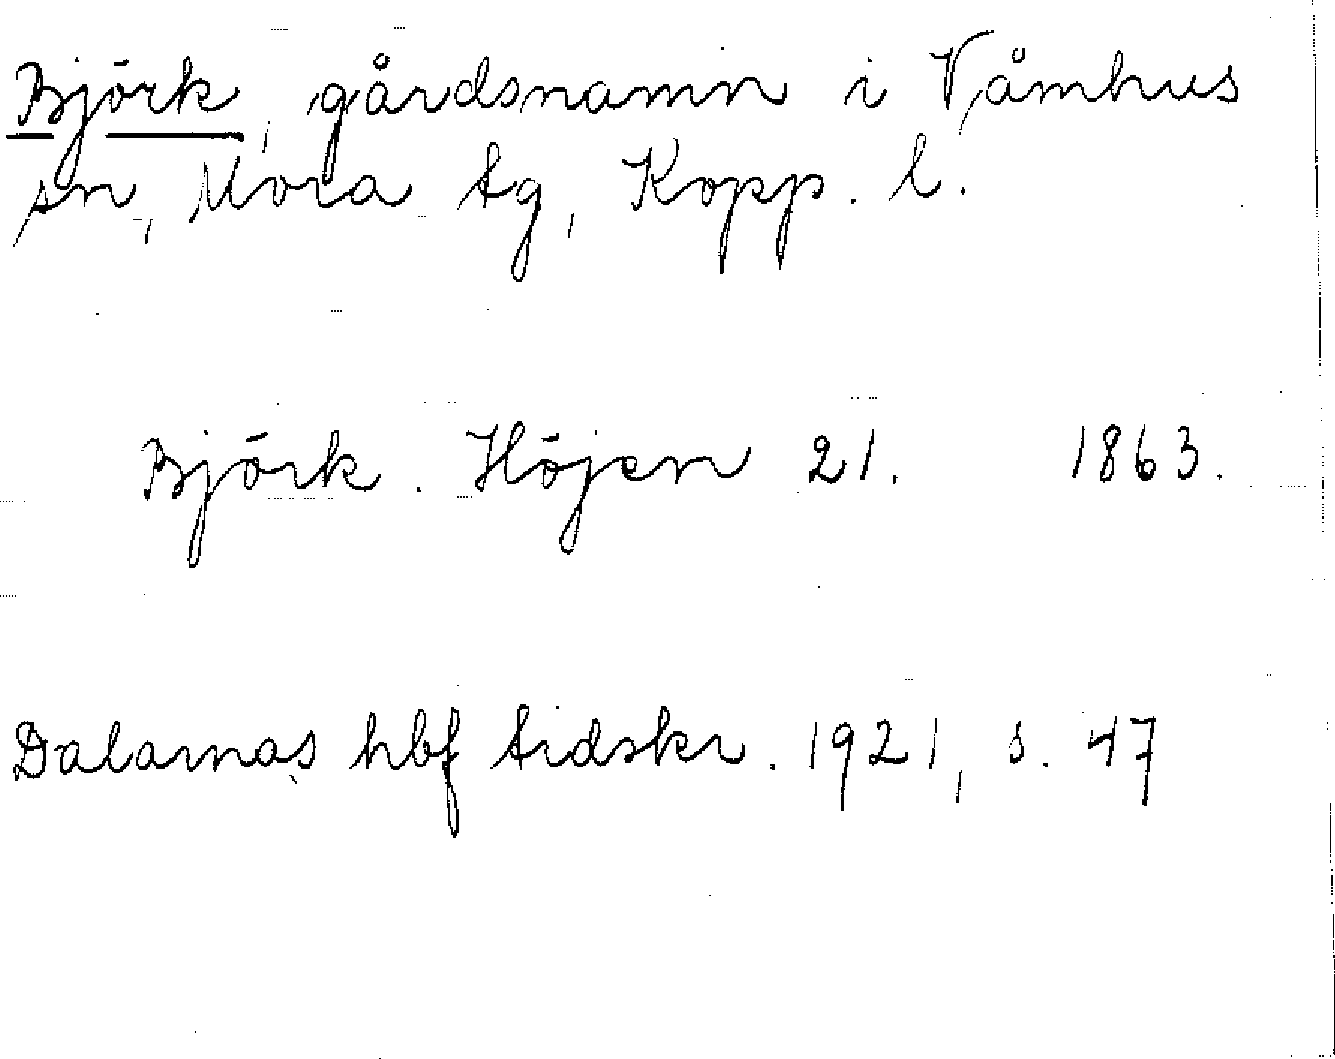 Björk, gårdsnamn i Våmhus
sn, Mora tg, Kopp. l.
Björk. Höjen 21. 1863.
Dalarnas hbf tidskr. 1921, s. 47